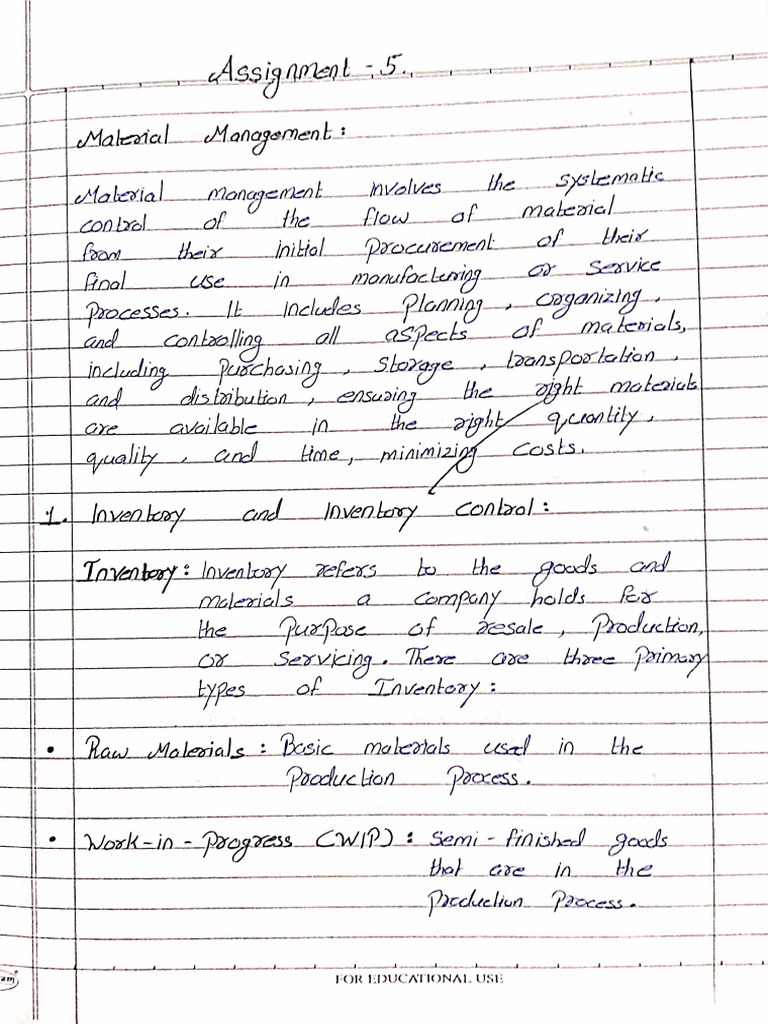 Assignment - 5.
Material Management:
Material management involves the systematic
control of the flow of material
from their initial procurement of their
final use in manufacturing or service
processes. It includes planning, organizing,
and controlling all aspects of materials,
including purchasing, storage, transportation,
and distribution, ensuring the right materials
are available in the right quantity,
quality, and time, minimizing costs.
1. Inventory and Inventory Control:
Inventory: Inventory refers to the goods and
materials a company holds for
the purpose of resale, Production,
or servicing. There are three primary
types of Inventory:
• Raw Materials: Basic materials used in the
Production Process.
• Work-in-Progress (WIP): Semi-finished goods
that are in the
Production Process.
FOR EDUCATIONAL USE